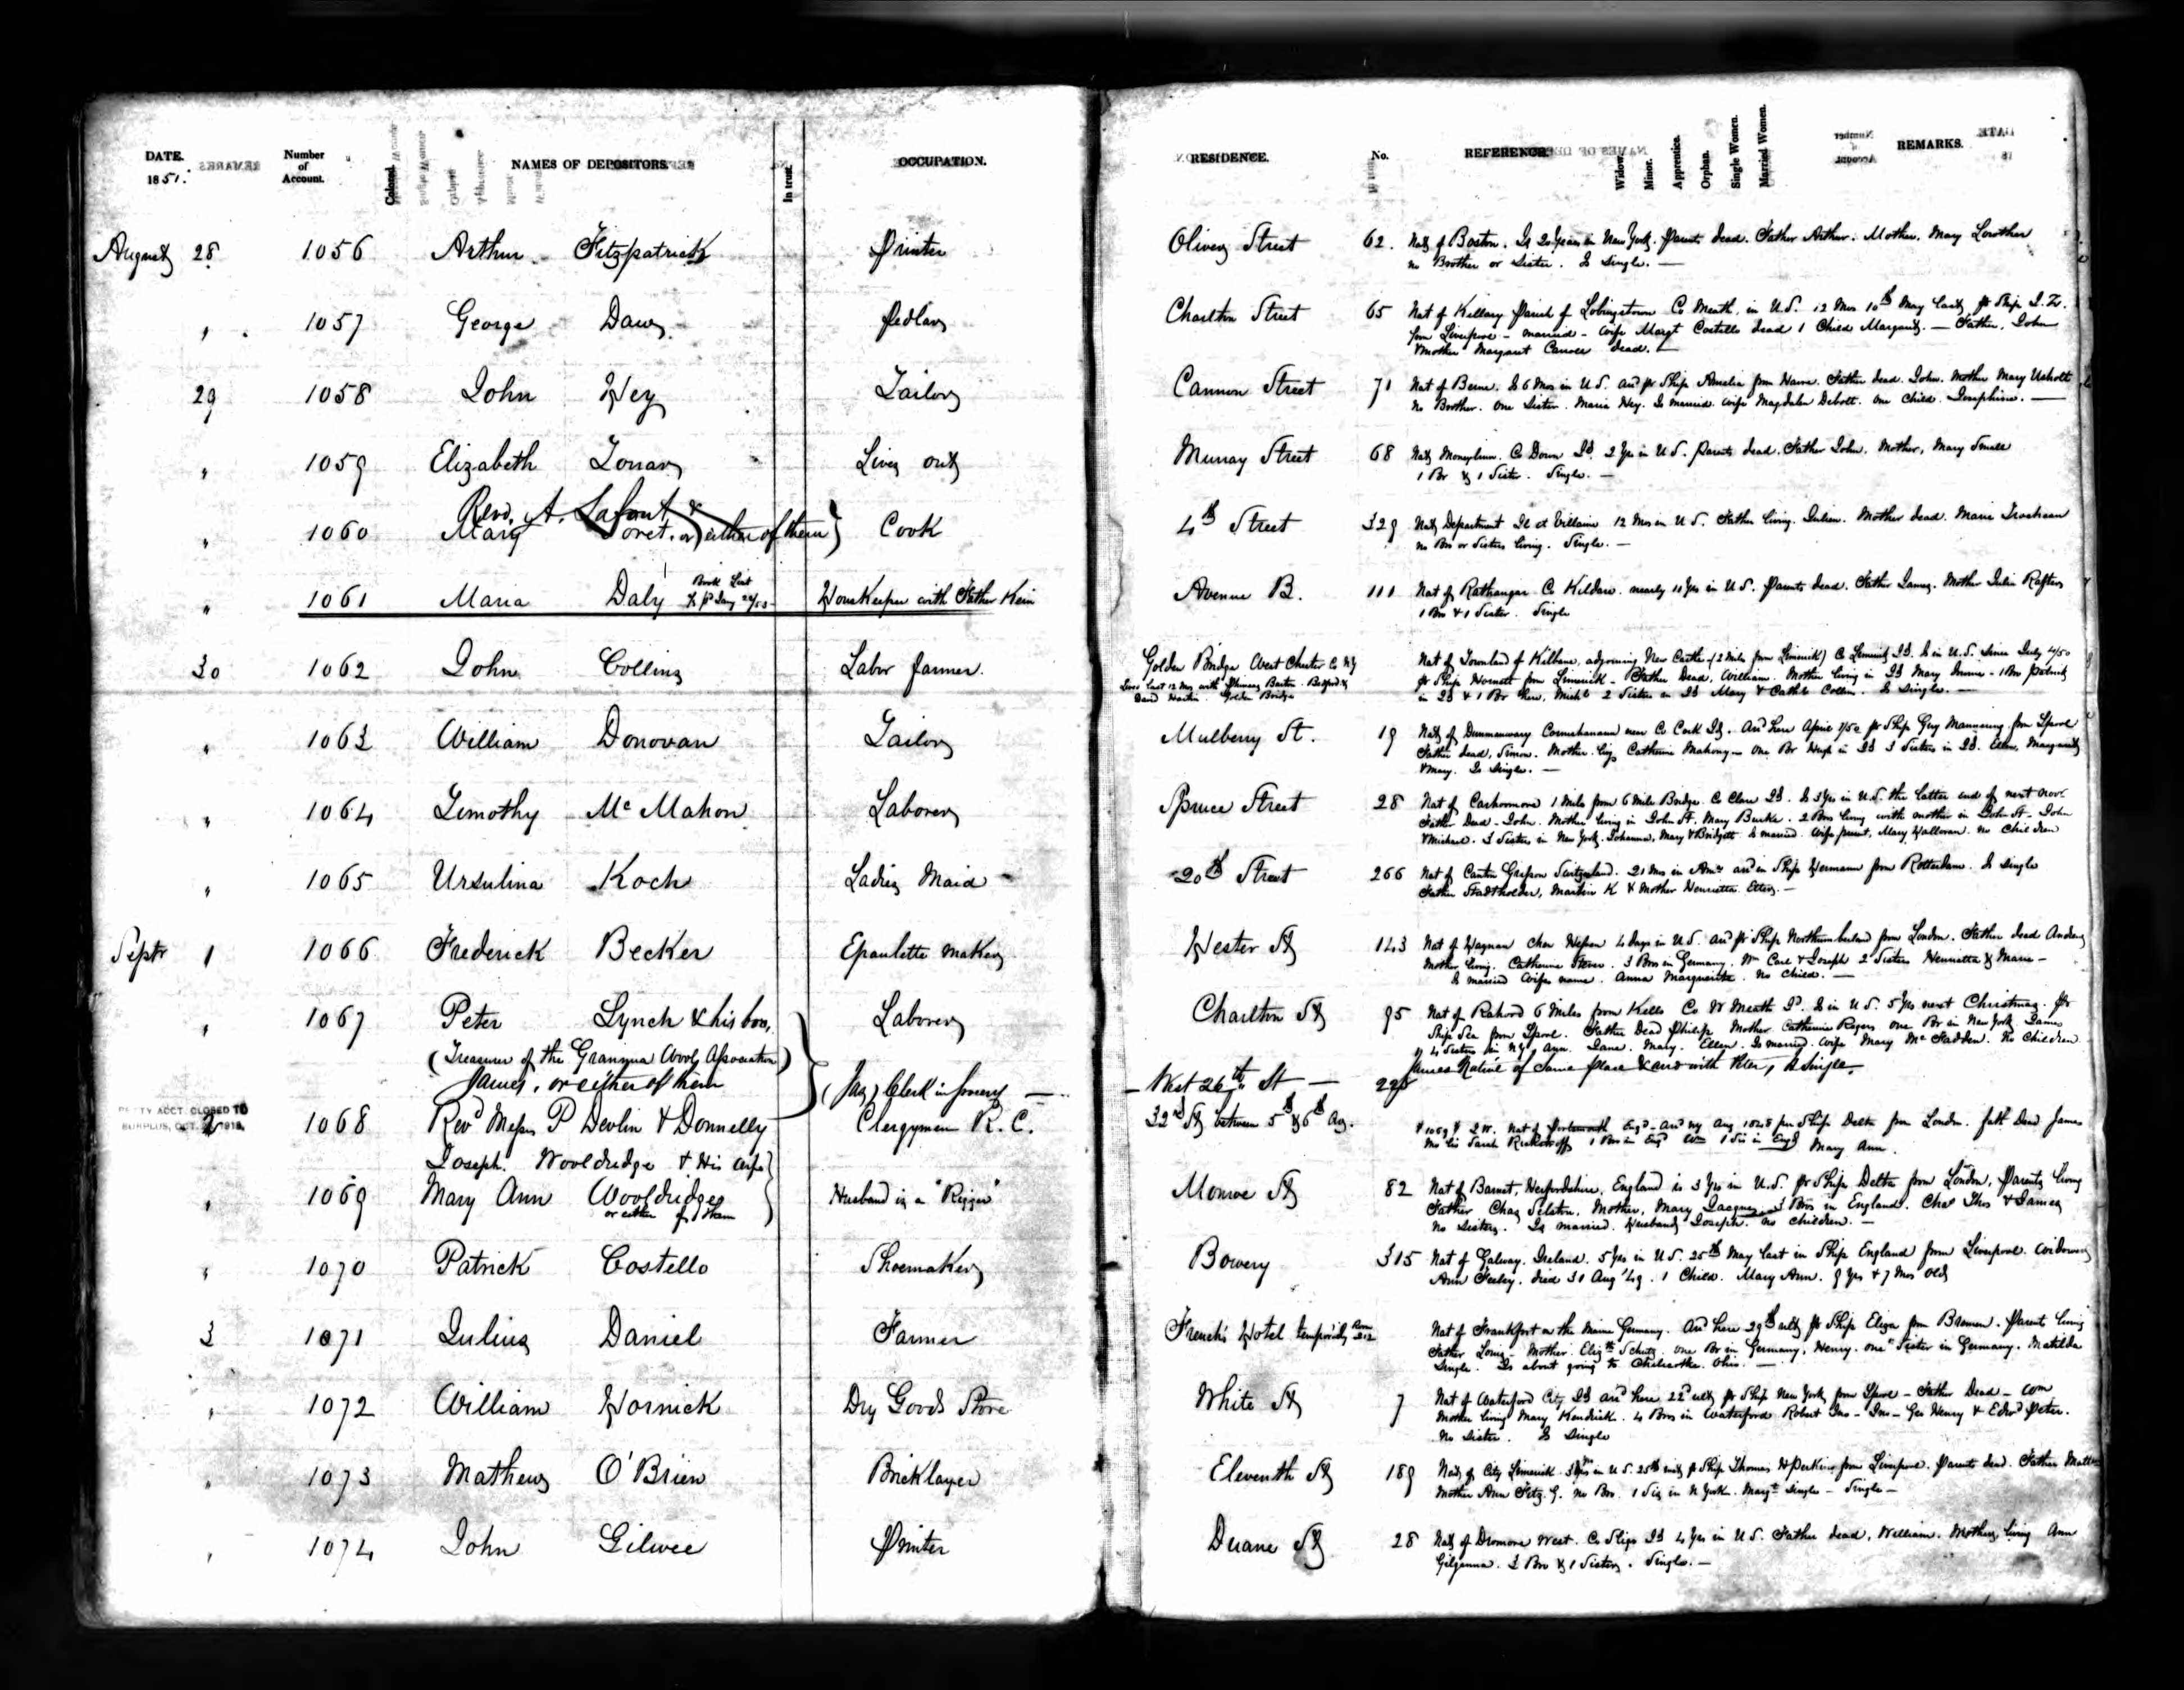 DATE. 1851.
Number of Account.
Colored.
NAMES OF DEPOSITORS.
In trust.
OCCUPATION.
RESIDENCE.
No.
REFERENCE.
Widow.
Minor.
Apprentice.
Orphan.
Single Women.
Married Women.
REMARKS.
August 28 1056 Arthur Fitzpatrick Printer Oliver Street 62. Nat of Boston. Is 20 Years in New York. Parents dead. Father Arthur. Mother, Mary Lowther
no Brother or Sister. Is Single. —
" 1057 George Daw Pedlar Charlton Street 65 Nat of Killary Parish of Lobingstown Co Meath, in U.S. 12 Mos 10th May last pr Ship I.Z.
from Liverpool - married - wife Margt Costello dead 1 Child Margaret. — Father, John
& Mother Margaret dead. —
29 1058 John Hey Tailor Cannon Street 71 Nat of Berne. Is 6 Mos in U.S. arrd pr Ship Amelia from Havre. Father dead. John. Mother Mary
no Brother. One Sister. Maria Hey. Is married. Wife Magdalen Debolt. One Child. Josephine. —
" 1059 Elizabeth Lives out Murray Street 68 Nat Co Down Id. 2 Yrs in U.S. Parents dead. Father John. Mother, Mary Small
1 Br & 1 Sister. Single. —
Revd. A. Lafont &
" 1060 Mary Foret. or either of them } Cook 4th Street 329 Nat Department Ile et Villaine 12 Mos in U.S. Father living. Julien. Mother dead. Marie
no Bro or Sisters living. Single. —
Book Lost
" 1061 Maria Daly Housekeeper with Father Kein Avenue B. 111 Nat of Rathangan Co Kildare. nearly 11 Yrs in U.S. Parents dead. Father James. Mother Julia Rafter
1 Bro & 1 Sister. Single
30 1062 John Collins Labor farmer. Golden Bridge West Chester Co N.Y. Nat of Townland of Kilbane, adjoining New Castle (2 Miles from Limerick) Co Limerick Id. Is in U.S. since July 4/50
Lives last 12 Mos with Barton Bedford & pr Ship Hornet from Limerick - Father Dead, William. Mother living in Id Mary - 1 Bro Patrick
David Golden Bridge in Id & 1 Br here, Michl. 2 Sisters in Id Mary & Cathe Collins. Is Single. —
" 1063 William Donovan Tailor Mulberry St. 19 Nat of Dunmanway near Co Cork Id. Arrd here April 7/50 pr Ship Guy Mannering from Lpool
Father dead, Simon. Mother livg Catherine Mahony - one Br Hugh in Id 3 Sisters in Id. Ellen, Margaret
& Mary. Is Single. —
" 1064 Timothy McMahon Laborer Spruce Street 28 Nat of 1 Mile from 6 Mile Bridge. Co Clare Id. Is 3 Yrs in U.S. the latter end of next Novr
Father Dead - John. Mother living in John St. Mary Burke. 2 Bros living with mother in John St - John
& Michael. 3 Sisters in New York. Johanna, Mary & Bridgett. Is married. Wife present, Mary Halloran. no Children
" 1065 Ursulina Koch Ladies Maid 20th Street 266 Nat of Canton Switzerland. 21 Mos in Ama arrd in Ship Hermann from Rotterdam. Is Single
Father Stadtholder, Martin K & Mother Henrietta —
Septr 1 1066 Frederick Becker Epaulette maker Hester St 143 Nat of Hessen 4 days in U.S. arrd pr Ship Northumberland from London. Father dead Andrew
Mother living. Catherine Stern. 3 Bros in Germany. Wm Carl & Joseph 2 Sisters Henrietta & Marie -
Is married Wifes name. Anna Marguerite. No Child. —
" 1067 Peter Lynch & his bro, Laborer Charlton St 95 Nat of 6 Miles from Kells Co W Meath Id. Is in U.S. 5 Yrs next Christmas. pr
Ship Sea from Lpool. Father Dead Philip. Mother Catherine Rogers one Br in New York James
(Treasurer of the Association) 4 Sisters in N.Y. Ann. Jane. Mary. Ellen. Is married. Wife Mary McFadden. No Children
James, or either of them (Jas) Clerk in Grocery — West 26th St — 225 James Native of Same place & arrd with Peter, Is Single.
PETTY ACCT. CLOSED TO
SURPLUS, OCT. 1918.
2 1068 Revd Messrs P Devlin & Donnelly Clergymen R.C. 32nd St between 5th & 6th Av. # 1069 # J.W. Nat of Portsmouth Engd - Arrd NY Aug 1848 per Ship Delta from London. fath Dead James
Mo liv Sarah 1 Bro in Engd Wm 1 Sis in Engd Mary Ann.
Joseph. Wooldridge & His Wife
" 1069 Mary Ann Wooldridge Husband is a "Rigger" Monroe St 82 Nat of Barnet, Herfordshire, England is 3 Yrs in U.S. pr Ship Delta from London, Parents living
or either of them Father Chas Mother, Mary Jacques. 3 Bros in England. Chas Thos & James
No Sisters. Is married. Husband Joseph. No children. —
" 1070 Patrick Costello Shoemaker Bowery 315 Nat of Galway. Ireland. 5 Yrs in U.S. 25th May last in Ship England from Liverpool. Widower
Ann Feeley. died 31 Aug '49. 1 Child. Mary Ann. 9 Yrs & 7 Mos Old
3 1071 Julius Daniel Farmer French's Hotel temporarily Room 212 Nat of Frankfort on the Maine Germany. Arrd here 29th ult pr Ship Eliza from Bremen. Parents living
Father Louis - Mother. Elizth Schutz. one Br in Germany, Henry. one Sister in Germany. Matilda
Single. Is about going to Ohio. —
" 1072 William Hornick Dry Goods Store White St 7 Nat of Waterford City Id arrd here 22d ult pr Ship New York from Lpool - Father Dead - Wm
Mother living Mary Kendrick. 4 Bros in Waterford Robert Jno - Geo Henry & Edwd Peter.
No Sister. Is Single
" 1073 Mathew O'Brien Bricklayer Eleventh St 189 Nat of City Limerick. in U.S. 25th pr Ship Thomas H Perkins from Liverpool. Parents dead. Father
Mother Ann Fitz. G. no Bro. 1 Sis in N York. Margt Single - Single -
" 1074 John Gilwee Printer Duane St 28 Nat of Dromore West. Co Sligo Id 4 Yrs in U.S. Father dead, William. Mother, living Ann
3 Bro & 1 Sister. Single. —